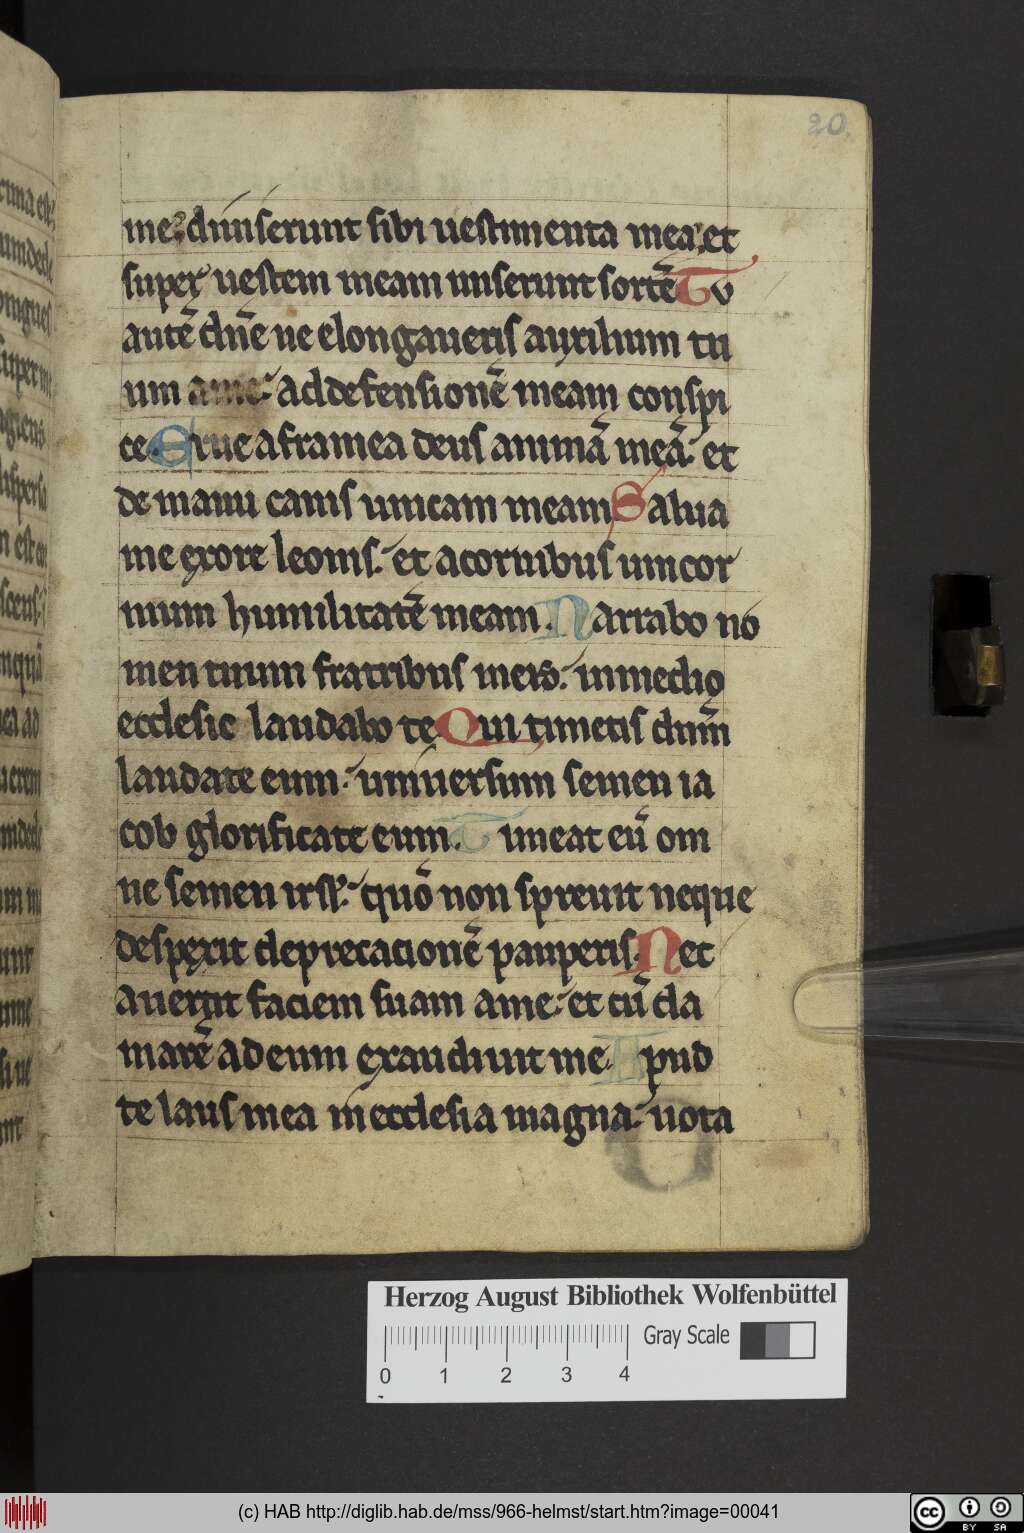 20.
me. diuiserunt sibi uestimenta mea. et
super uestem meam miserunt sortē Tv
autē dn̄e ne elongaueris auxilium tu
um a me. ad defensionē meam conspi
ce. Erue a framea deus animā meā. et
de manu canis unicam meam Salua
me exore leonis. et acornibus unicor
nium humilitatē meam. Narrabo no
men tuum fratribus meis. inmedio
ecclesie laudabo te Qui timetis dnm̄
laudate eum. uniuersum semen ia
cob glorificate eum. Timeat eū om
ne semen isrl̄. quō non spreuit neque
despexit deprecacionē pauperis. Nec
auertit faciem suam ame. et cū cla
marē ad eum exaudiuit me Apud
te laus mea inecclesia magna. uota
Herzog August Bibliothek Wolfenbüttel
Gray Scale
0 1 2 3 4
(c) HAB http://diglib.hab.de/mss/966-helmst/start.htm?image=00041
cc BY SA